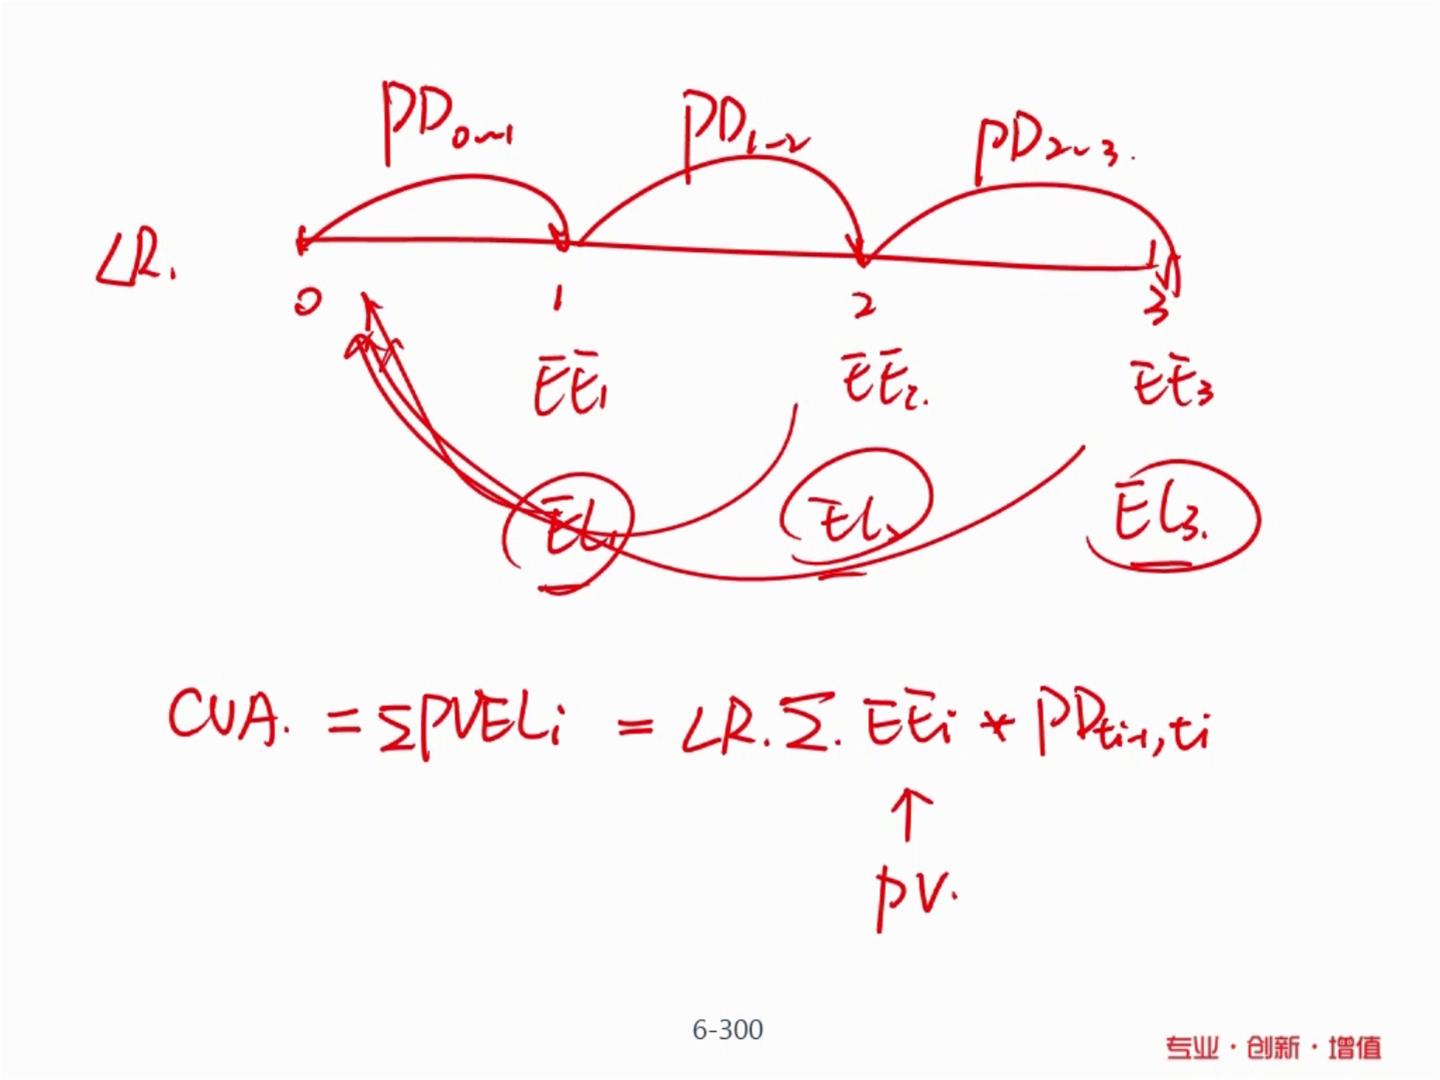 PD0~1 PD1~2 PD2~3.
LR.
0 1 2 3
EE1 EE2. EE3
EL1 EL2 EL3.
CVA. = ΣPVELi = LR.Σ. EEi * PDti-1,ti
↑
PV.
6-300
专业·创新·增值